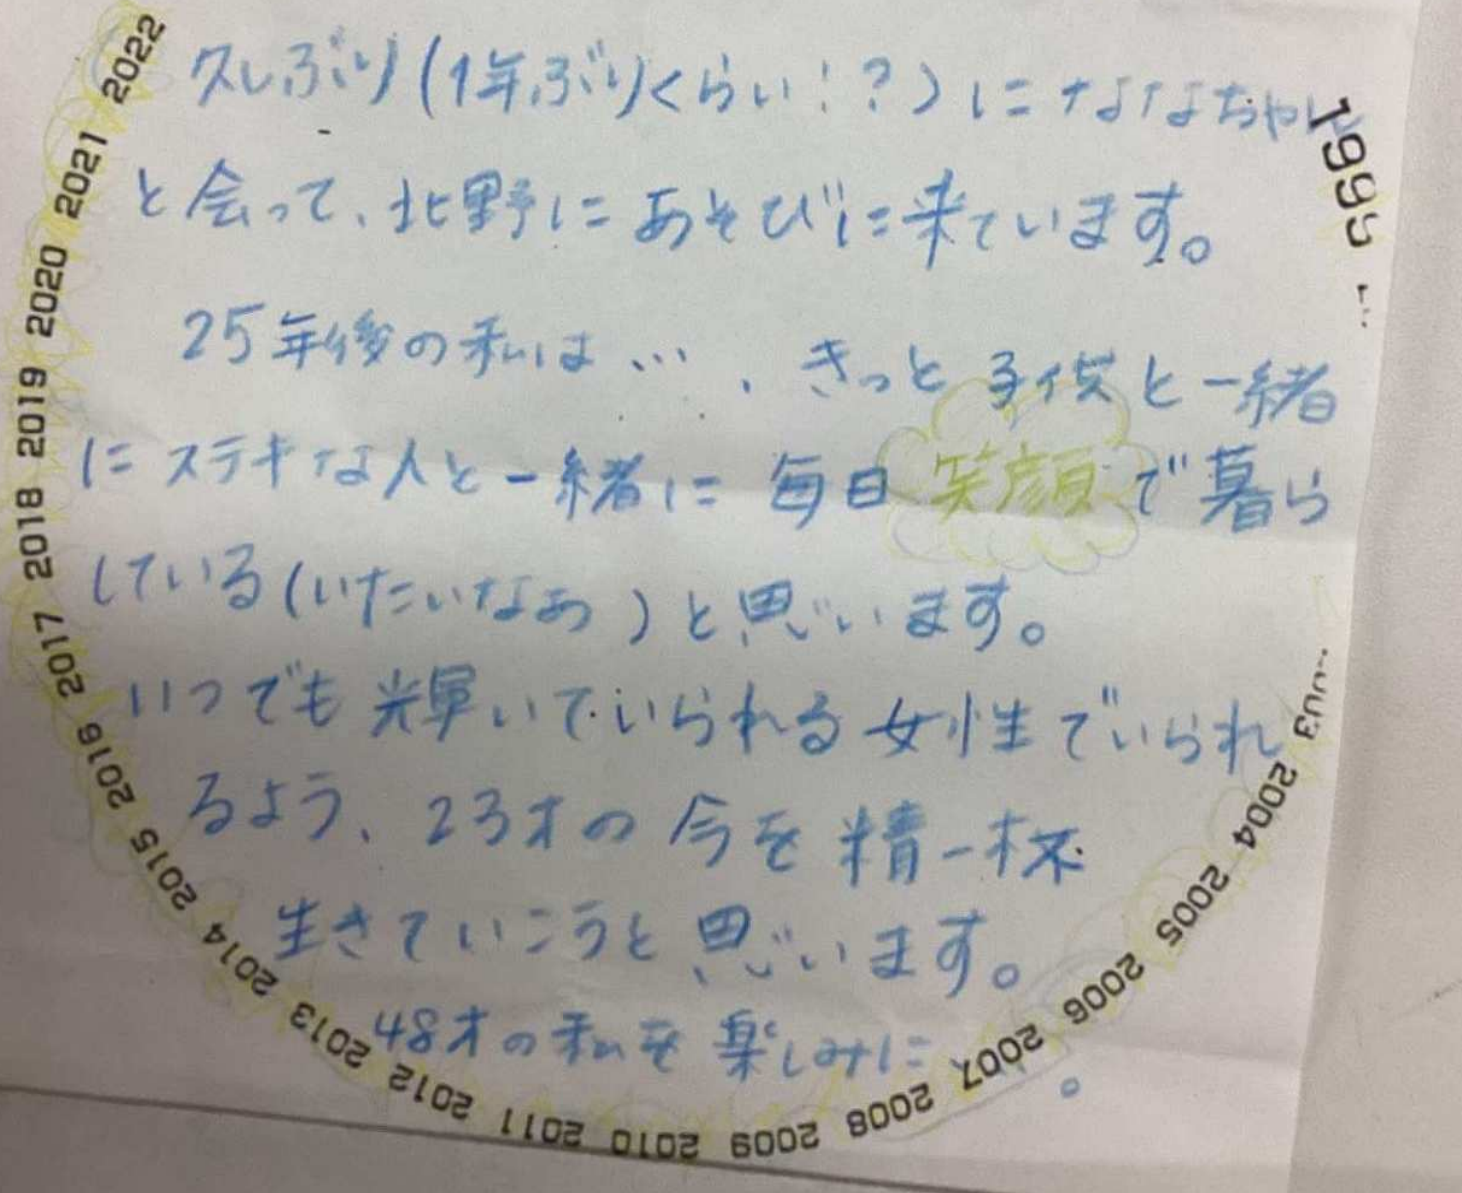 久しぶり(1年ぶりくらい!?)にななちゃん
と会って、北野にあそびに来ています。
25年後の私は…、きっと子供と一緒
にステキな人と一緒に毎日笑顔で暮ら
している(いたいなあ)と思います。
いつでも輝いていられる女性でいられ
るよう、23才の今を精一杯
生きていこうと思います。
48才の私を楽しみに。
1999
2004
2005
2006
2007
2008
2009
2010
2011
2012
2013
2014
2015
2016
2017
2018
2019
2020
2021
2022